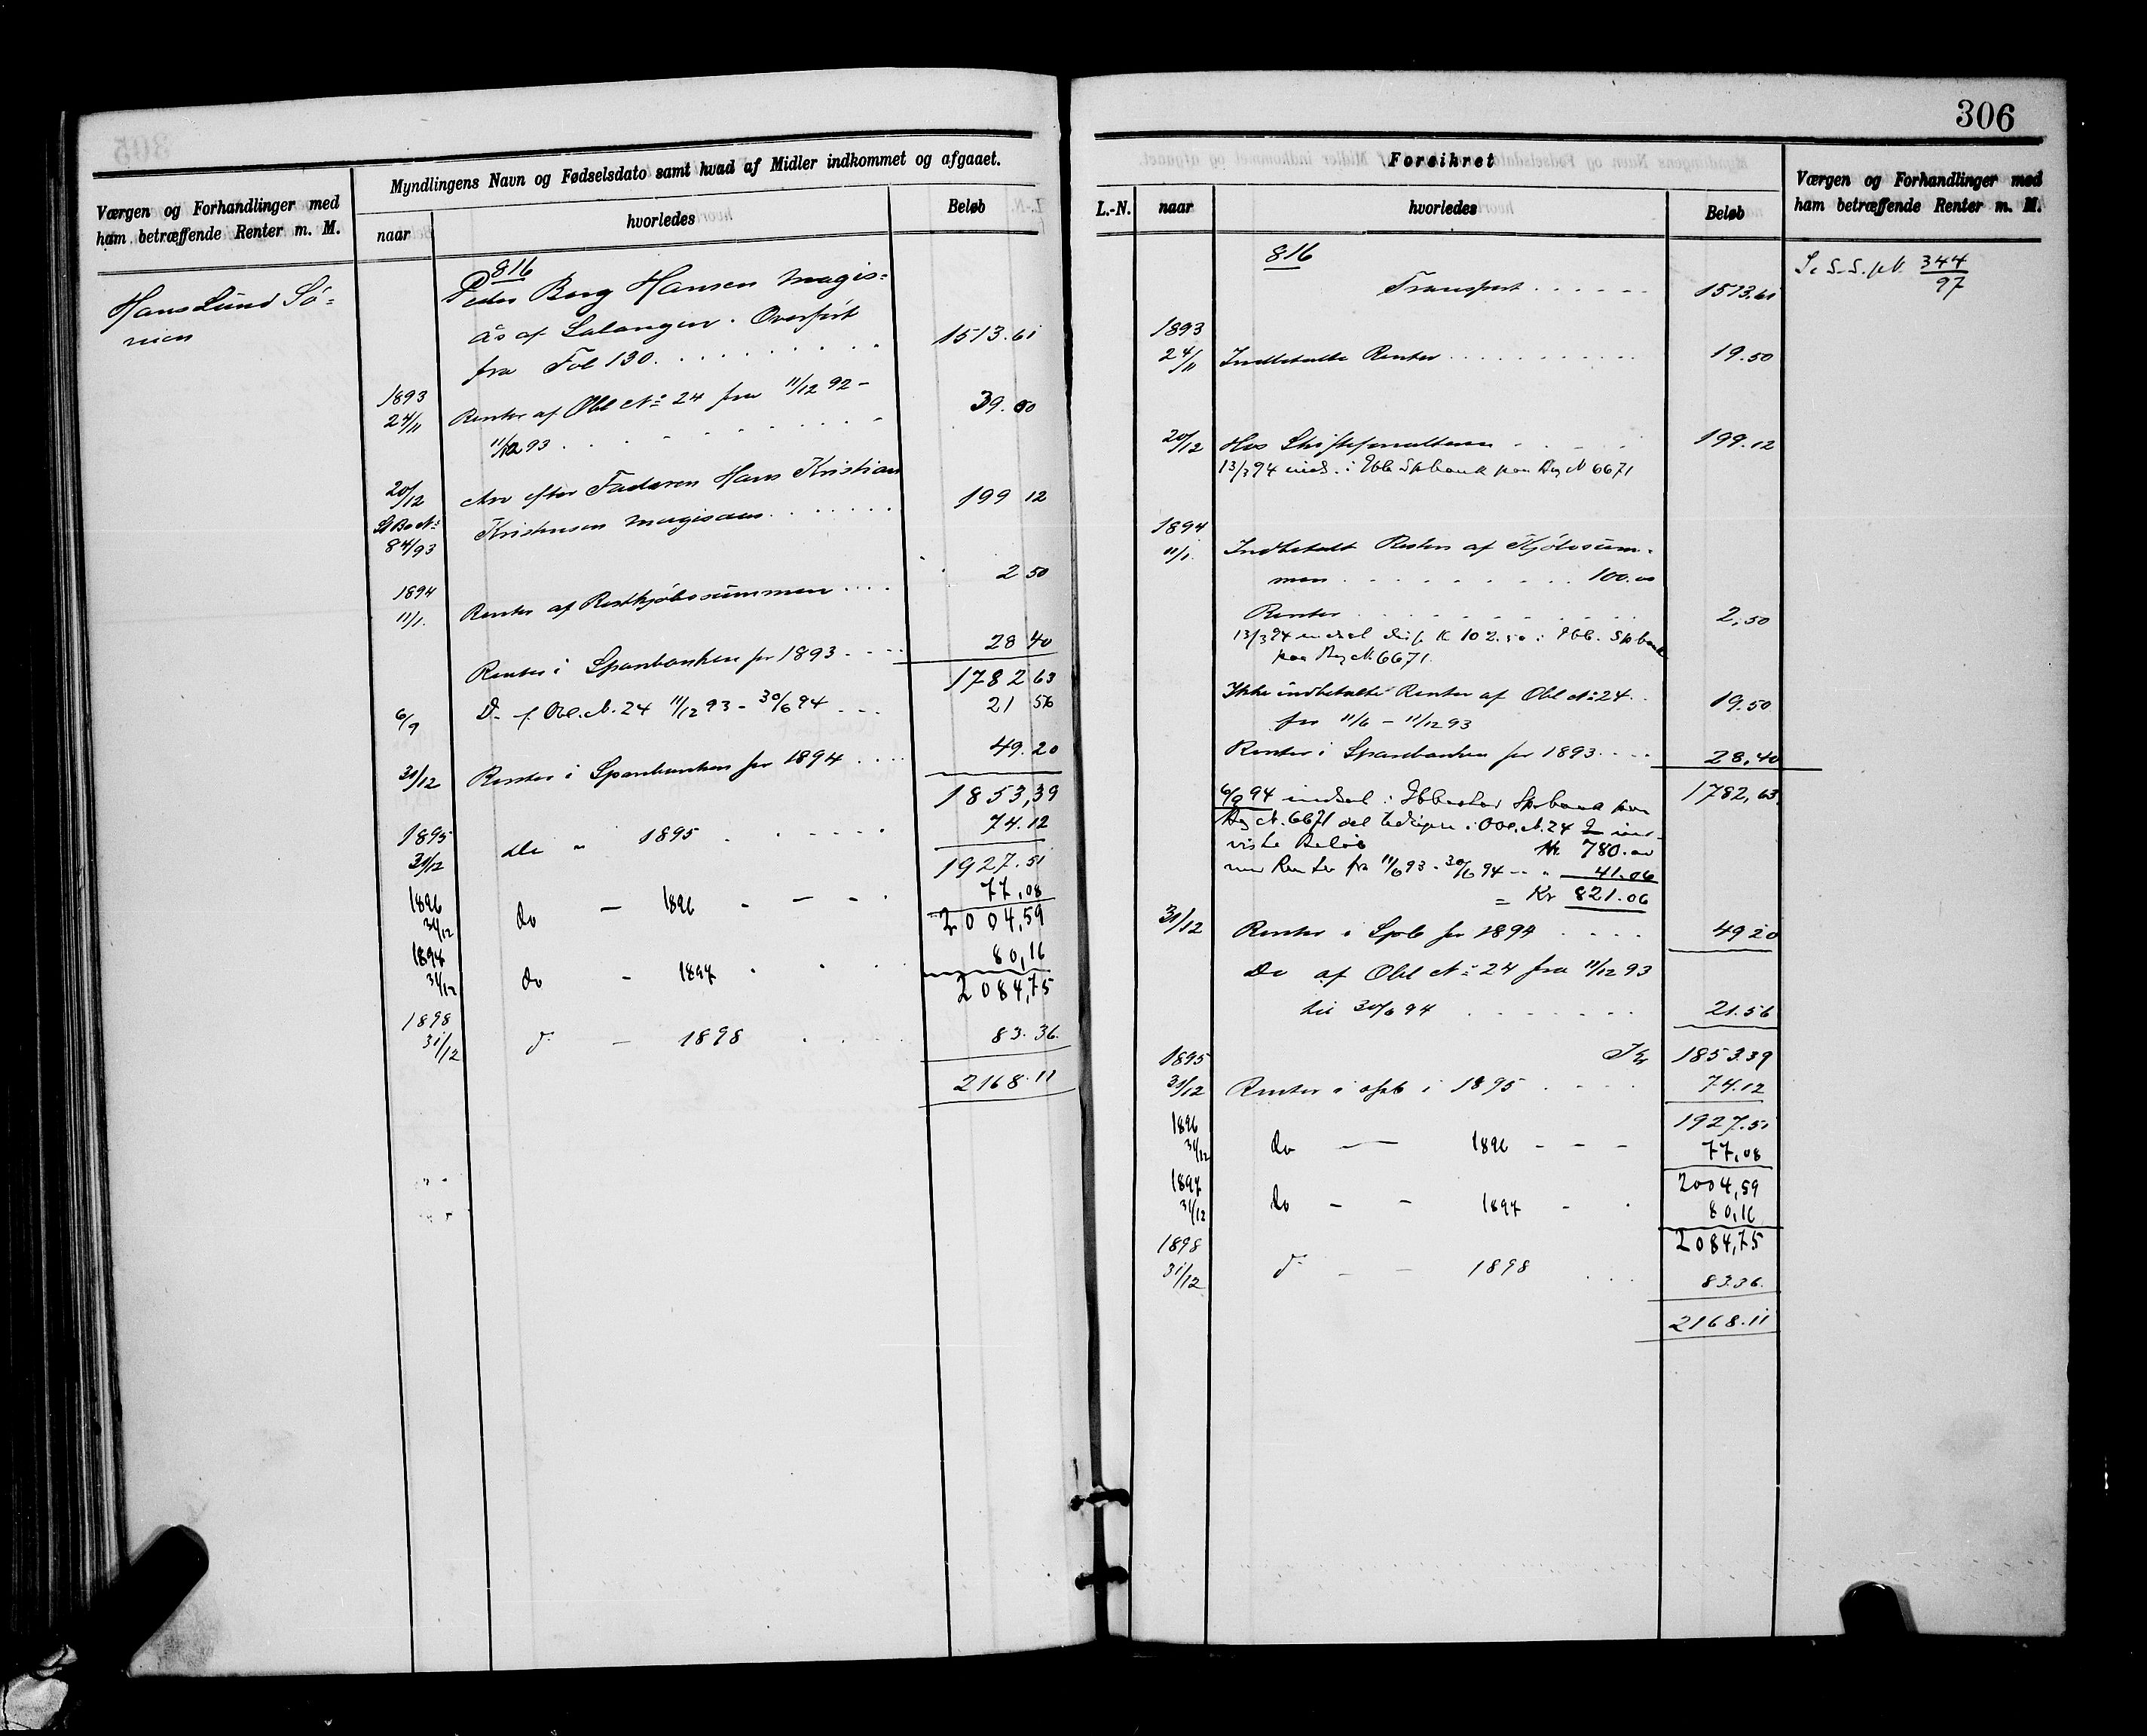 306
Værgen og Forhandlinger med
ham betræffende Renter m. M.
Myndlingens Navn og Fødselsdato samt hvad af Midler indkommet og afgaaet.
naar
hvorledes
Beløb
Hans Lund Sø-
rreisen
816
Peder Borg Hansen Magis-
ås af Salangen. Overført
fra Fol 130. 1513.61
1893
24/11 Renter af Obl No 24 fra 11/12 92 -
11/12 93 . 39.00
20/12 Arv efter Faderen Hans Kristian
Kristensen Magisaas. 199 12
84/93
1894
11/1. Renter af Restkjøbesummen .... 2 50
Renter i Sparebanken for 1893 .... 28 40
1782 63
6/9 Do f. Obl. N. 24 11/12 93 - 30/6 94 21 56
31/12 Renter i Sparebanken for 1894 .... 49.20
1853,39
1895
31/12 do " 1895 74.12
1927.51
1896
31/12 do — 1896 77,08
2004,59
1897
31/12 do - 1897 80,16
2084,75
1898
31/12 do — 1898 83.36.
2168.11
Forsikret
L.-N. naar
hvorledes
Beløb
Værgen og Forhandlinger med
ham betræffende Renter m. M.
816
Transport 1513.61
344
97
1893
24/11 Indbetalte Renter 19.50
20/12 Hos Skifteforvalteren 199.12
13/3 94 inds. i Ibb Spbank paa Bog N 6671
1894
11/1. Indbetalt Resten af Kjøbesum-
men 100.00
Renter 2,50
13/3 94 indsat K 102.50 i Ibb. Spbank
paa Bog N. 6671.
Ikke indbetalte Renter af Obl No 24 19.50
fra 11/6 - 11/12 93
Renter i Sparebanken for 1893 28,40
1782,63
6/9 94 indsat i Ibbestad Spbank paa
Bog N. 6671 i Obl. N. 24
viste Beløb Kr. 780.00
Renter fra 11/6 93 - 30/6 94 - " 41.06
= Kr 821.06
31/12 Renter i Spb for 1894 49 20
Do af Obl No 24 fra 11/12 93
til 30/6 94 21.56
Kr 1853.39
1895
31/12 Renter i Spb i 1895 74.12
1927.51
1896
31/12 do — 1896 77,08
2004,59
1897
31/12 do - - 1897 80,16
2084,75
1898
31/12 do - - 1898 83.36.
2168.11